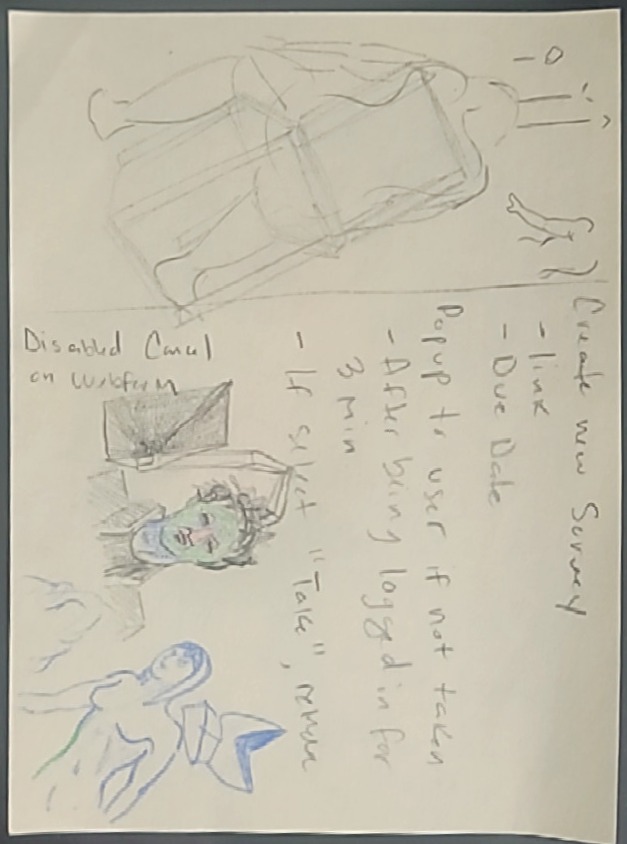 Create new Survey
- link
- Due Date
Popup to user if not taken
- After being logged in for
3 min
- If select "Take", remove
Disabled Cancel
on webform